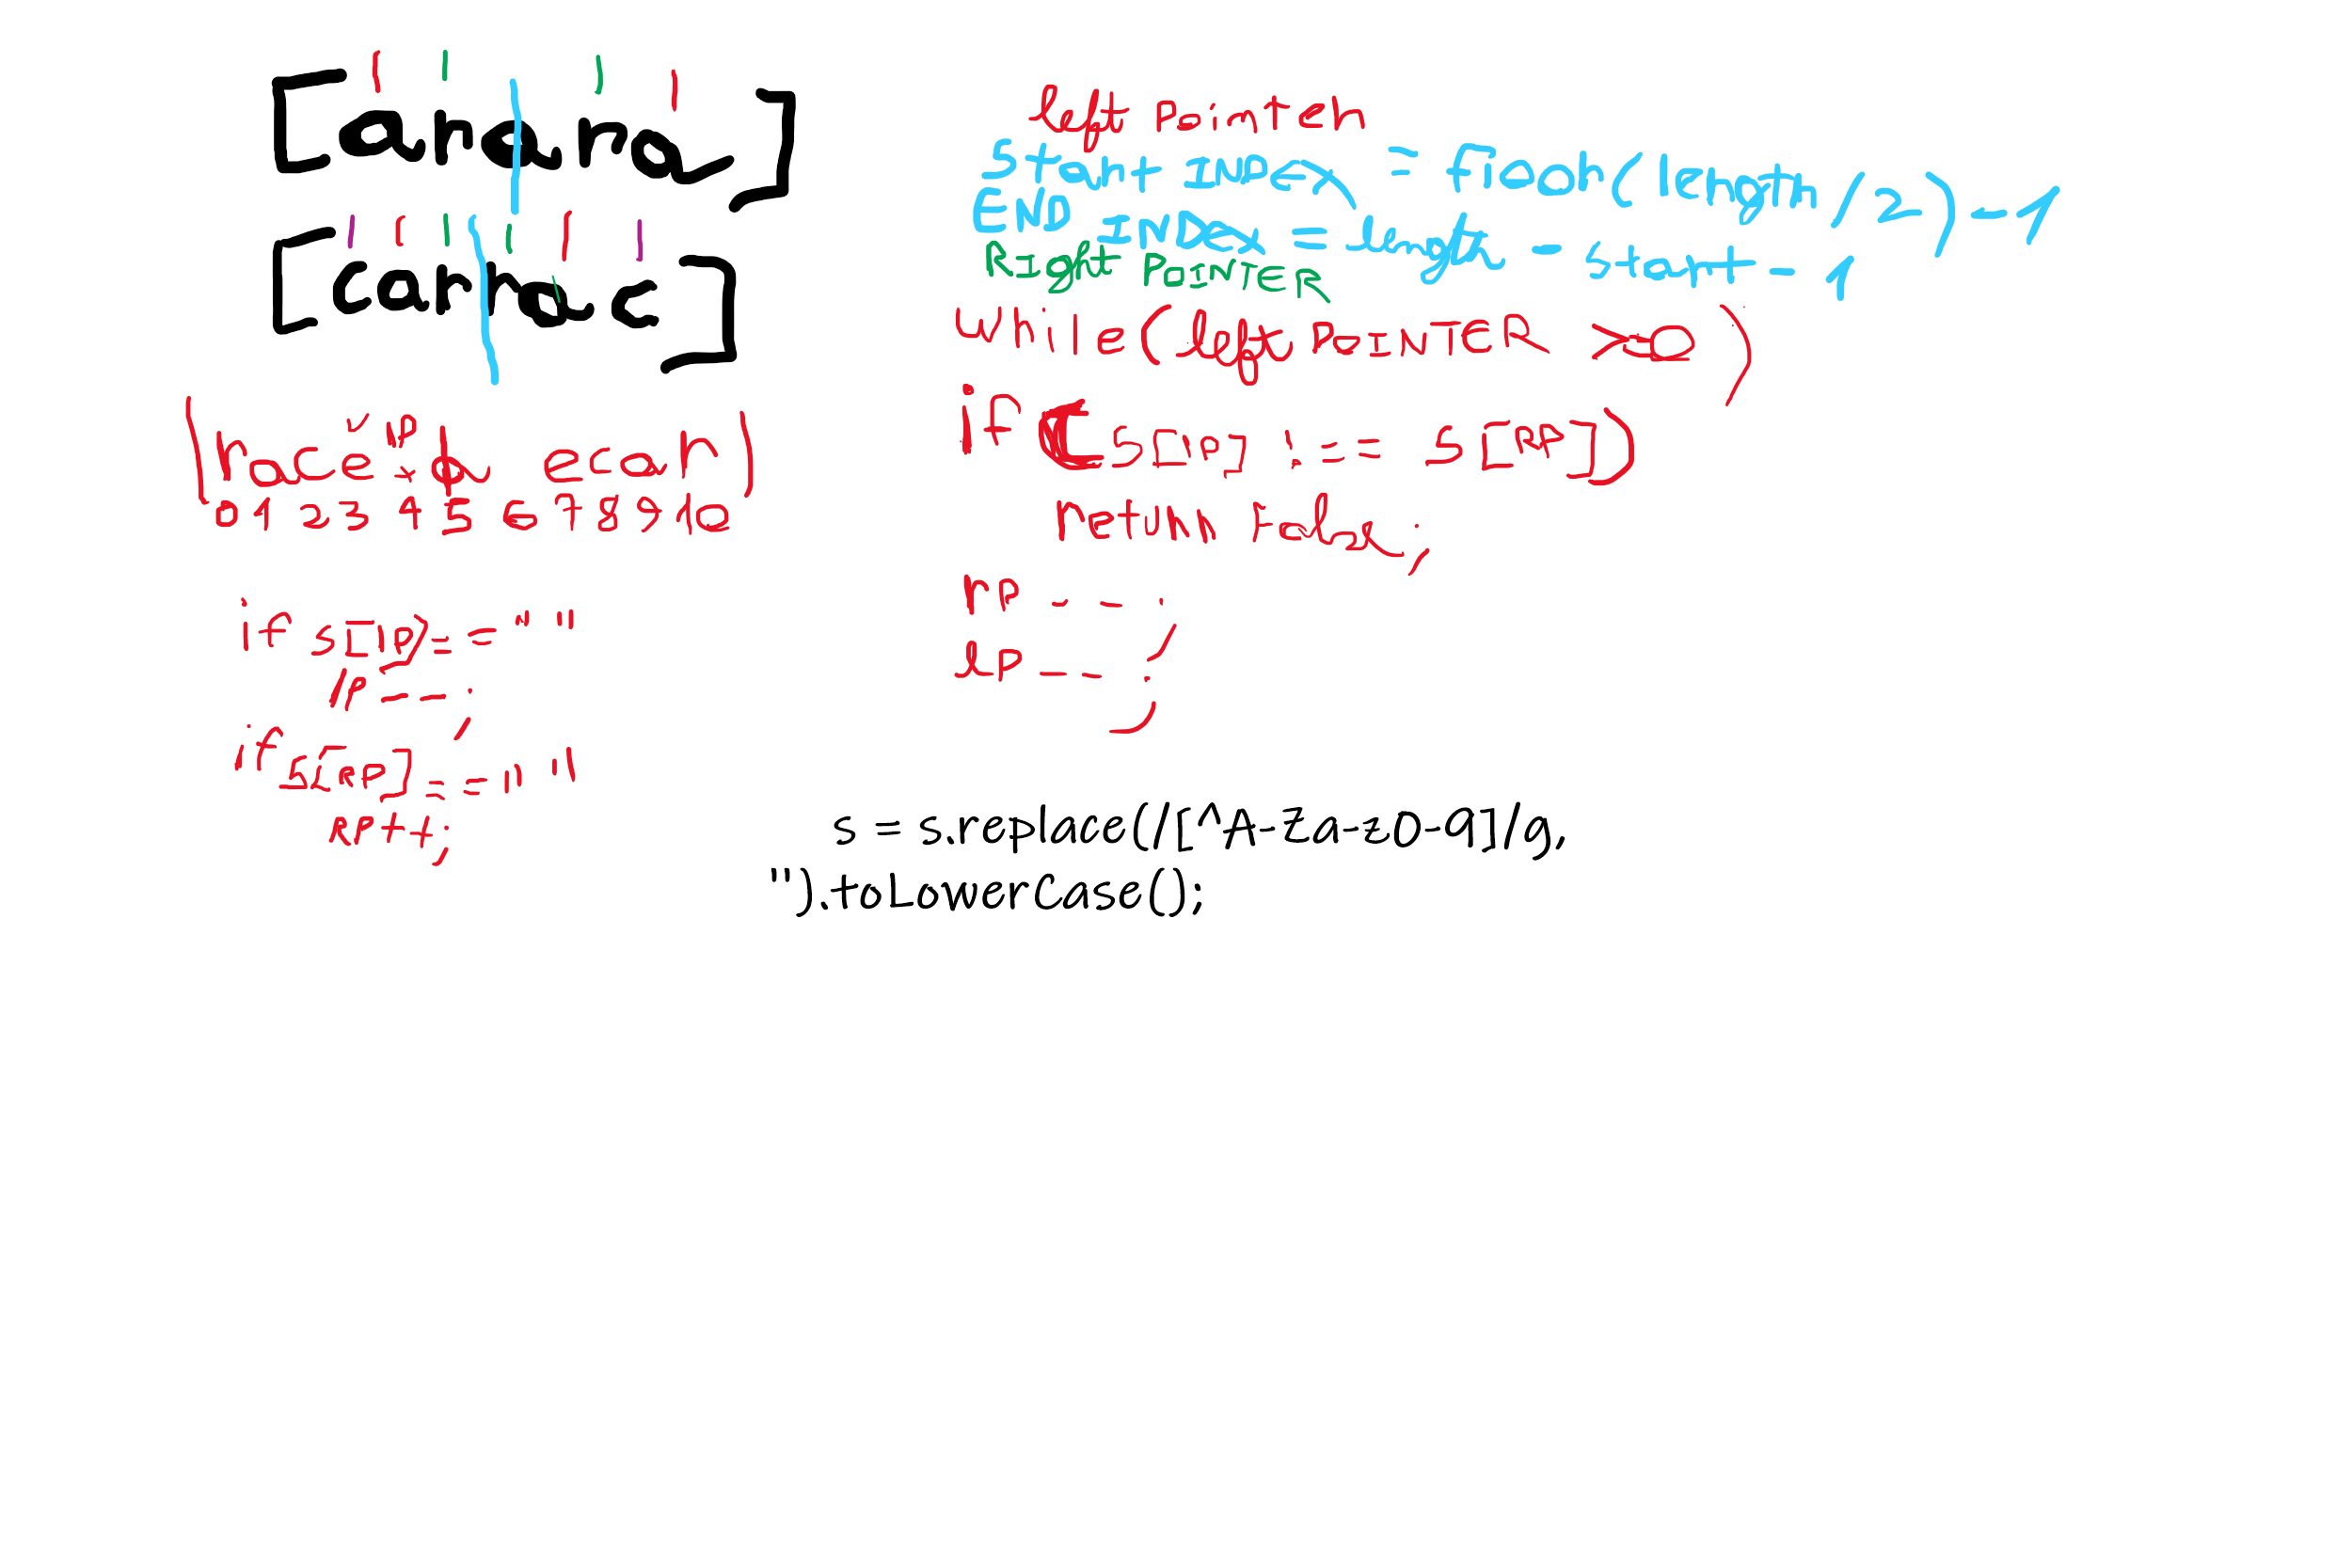 [anana]
[carrac]
race a ecar
0 1 2 3 4 5 6 7 8 9 10
if s[lp] == " "
lp--;
if s[RP] == " "
RP++;
left pointer
Start INDEX = floor(length/2) - 1
END INDEX = length - start - 1
Right POINTER
while(left POINTER >= 0)
if ( s[lp] !== s[RP])
return False;
rp--;
lp--;
s = s.replace(/[^A-Za-z0-9]/g,
'').toLowerCase();